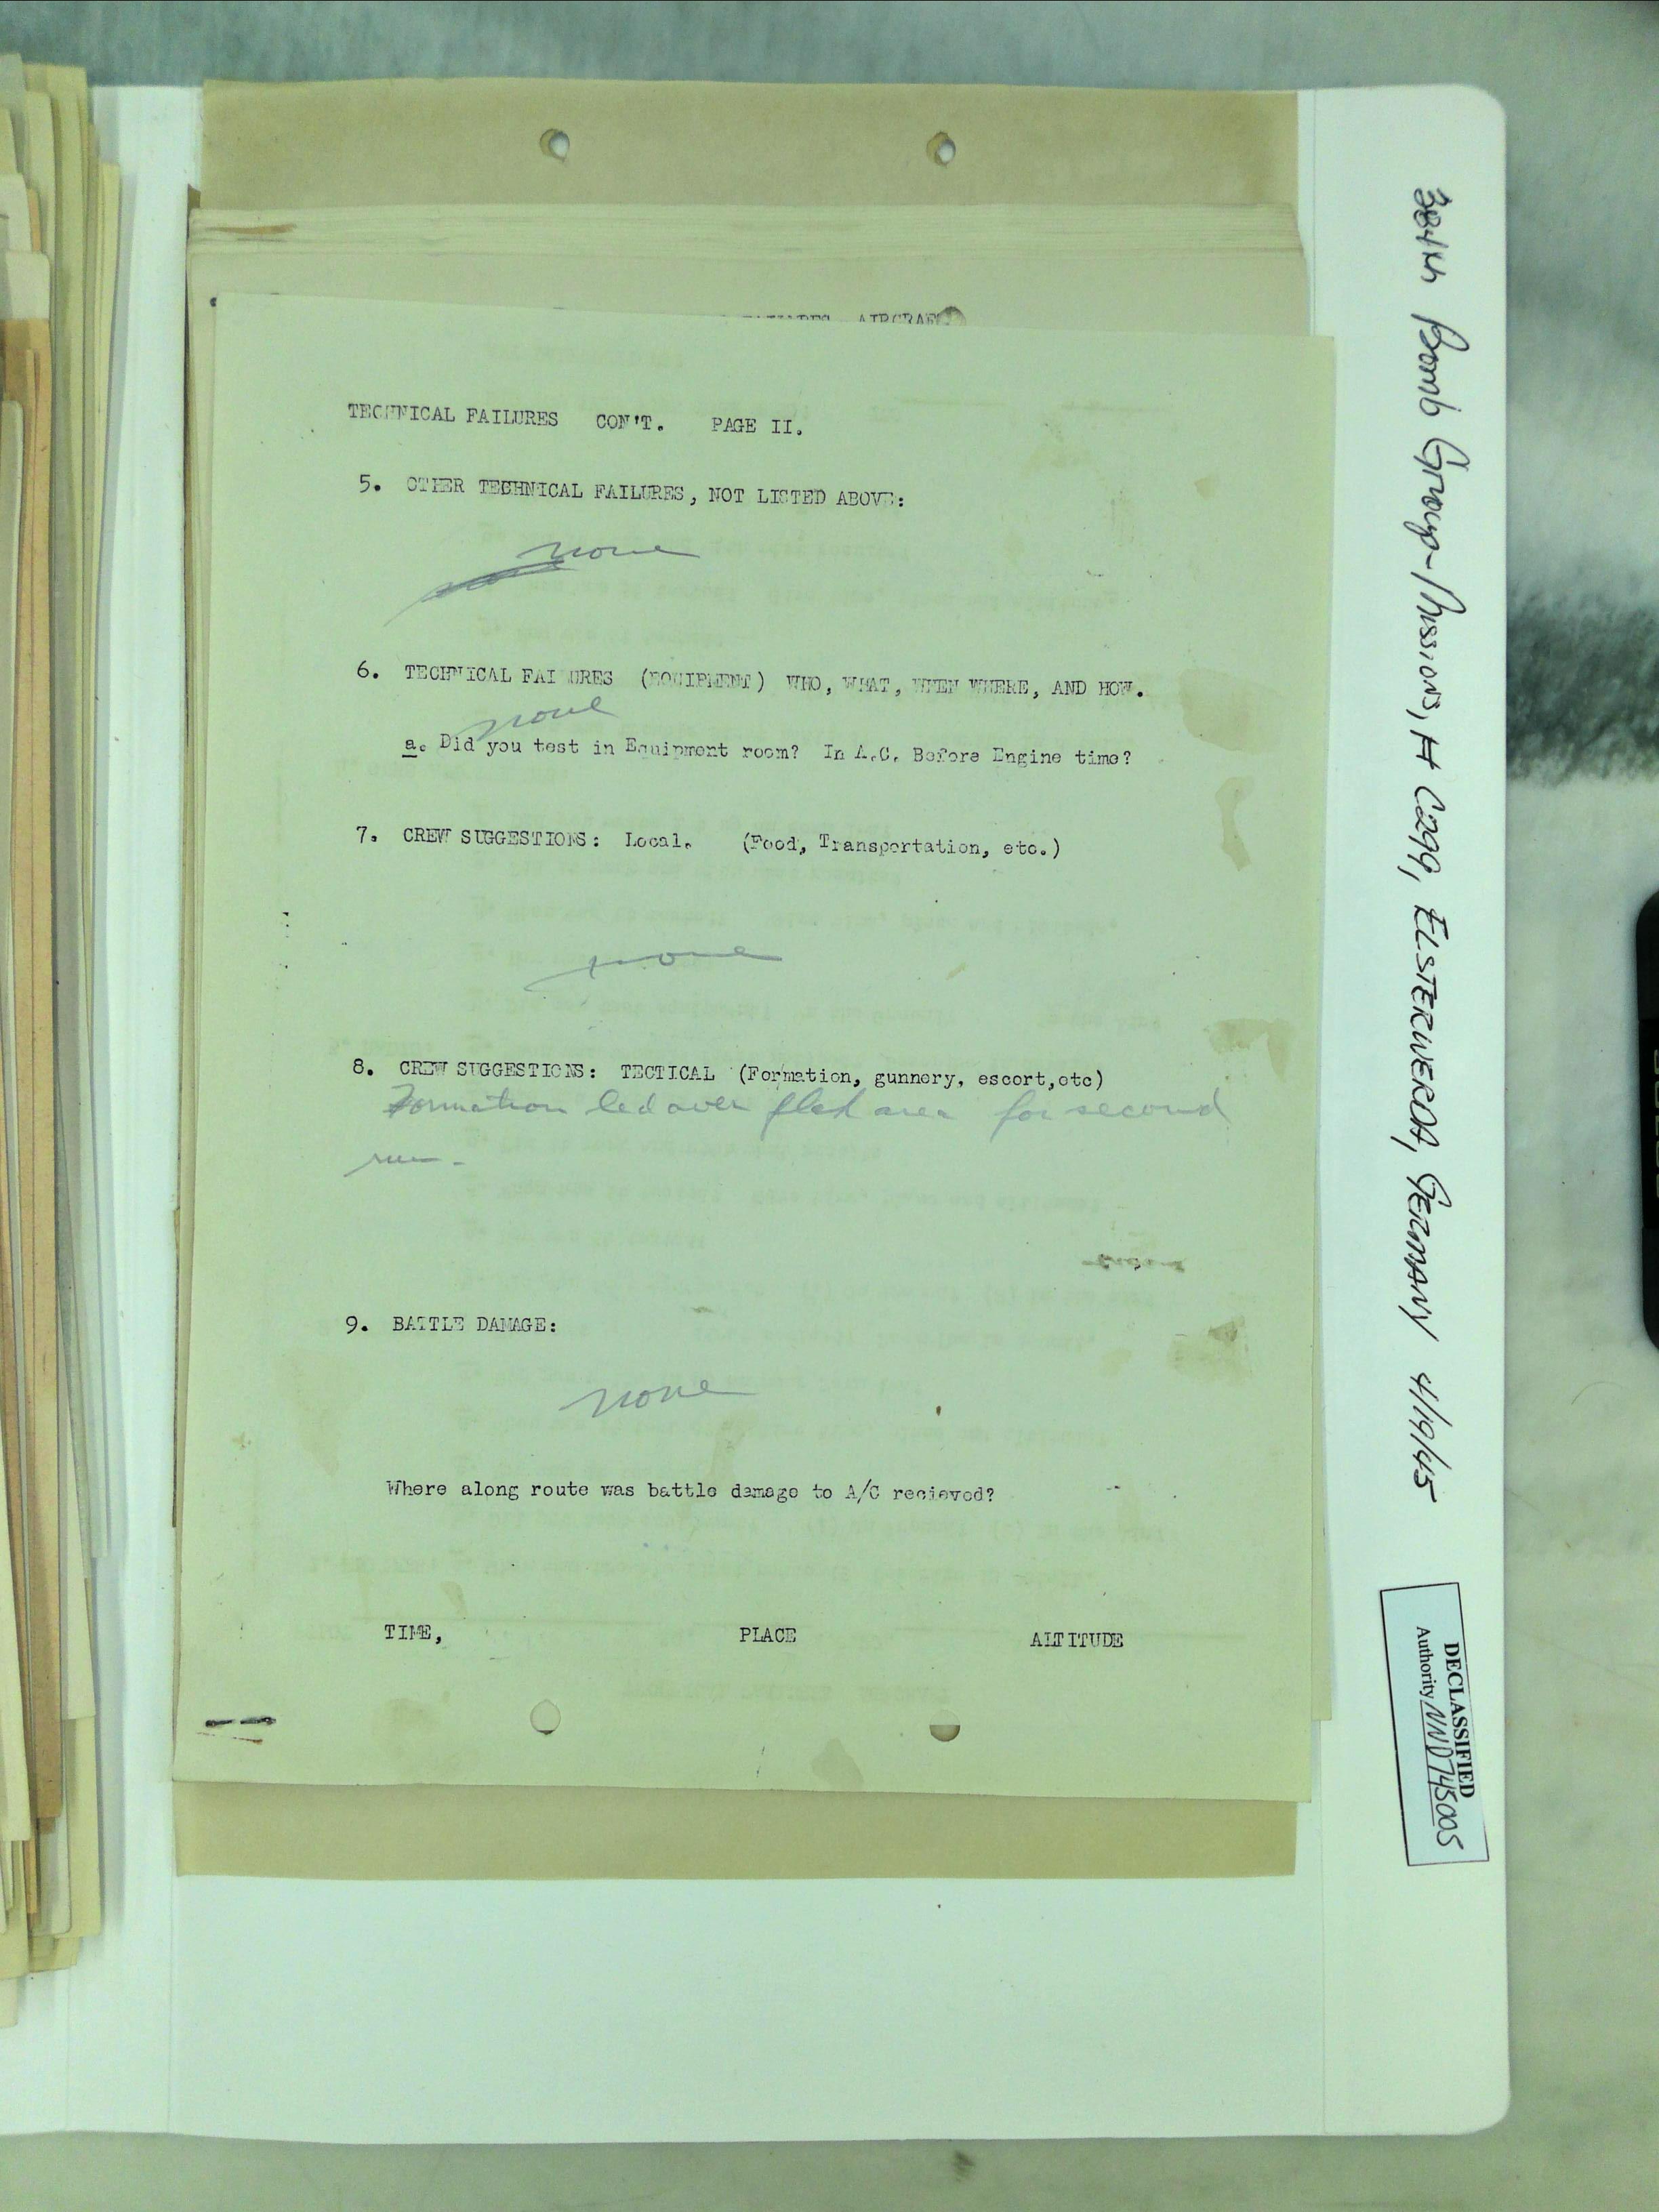 AIRCRAF
TECHNICAL FAILURES CON'T. PAGE II.
5. OTHER TECHNICAL FAILURES, NOT LISTED ABOVE:
none
6. TECHNICAL FAI URES (EQUIPMENT) WHO, WHAT, WHEN WHERE, AND HOW.
none
a. Did you test in Equipment room? In A.C. Before Engine time?
7. CREW SUGGESTIONS: Local. (Food, Transportation, etc.)
none
8. CREW SUGGESTIONS: TECTICAL (Formation, gunnery, escort,etc)
Formation led over flak area for second
run-
9. BATTLE DAMAGE:
none
Where along route was battle damage to A/C recieved?
TIME, PLACE ALTITUDE
384th Bomb Group-Missions, # 299, ELSTERWERDA, GERMANY 4/19/45
DECLASSIFIED
Authority NND745005